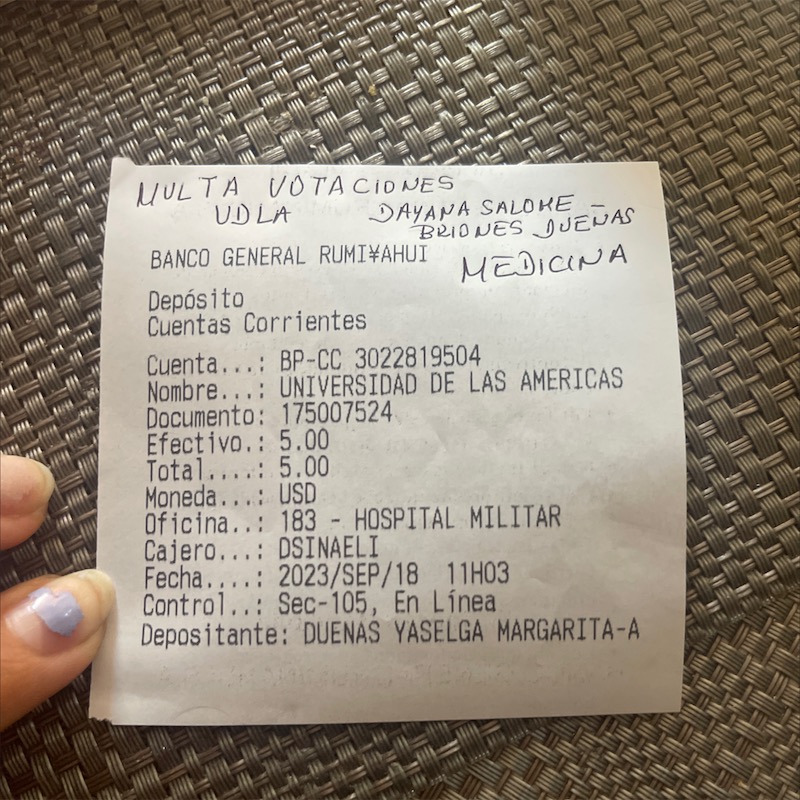 MULTA VOTACIONES
UDLA DAYANA SALOME
BRIONES DUEÑAS
MEDICINA
BANCO GENERAL RUMI¥AHUI
Depósito
Cuentas Corrientes
Cuenta...: BP-CC 3022819504
Nombre...: UNIVERSIDAD DE LAS AMERICAS
Documento: 175007524
Efectivo.: 5.00
Total....: 5.00
Moneda...: USD
Oficina..: 183 - HOSPITAL MILITAR
Cajero...: DSINAELI
Fecha....: 2023/SEP/18 11H03
Control..: Sec-105, En Línea
Depositante: DUENAS YASELGA MARGARITA-A